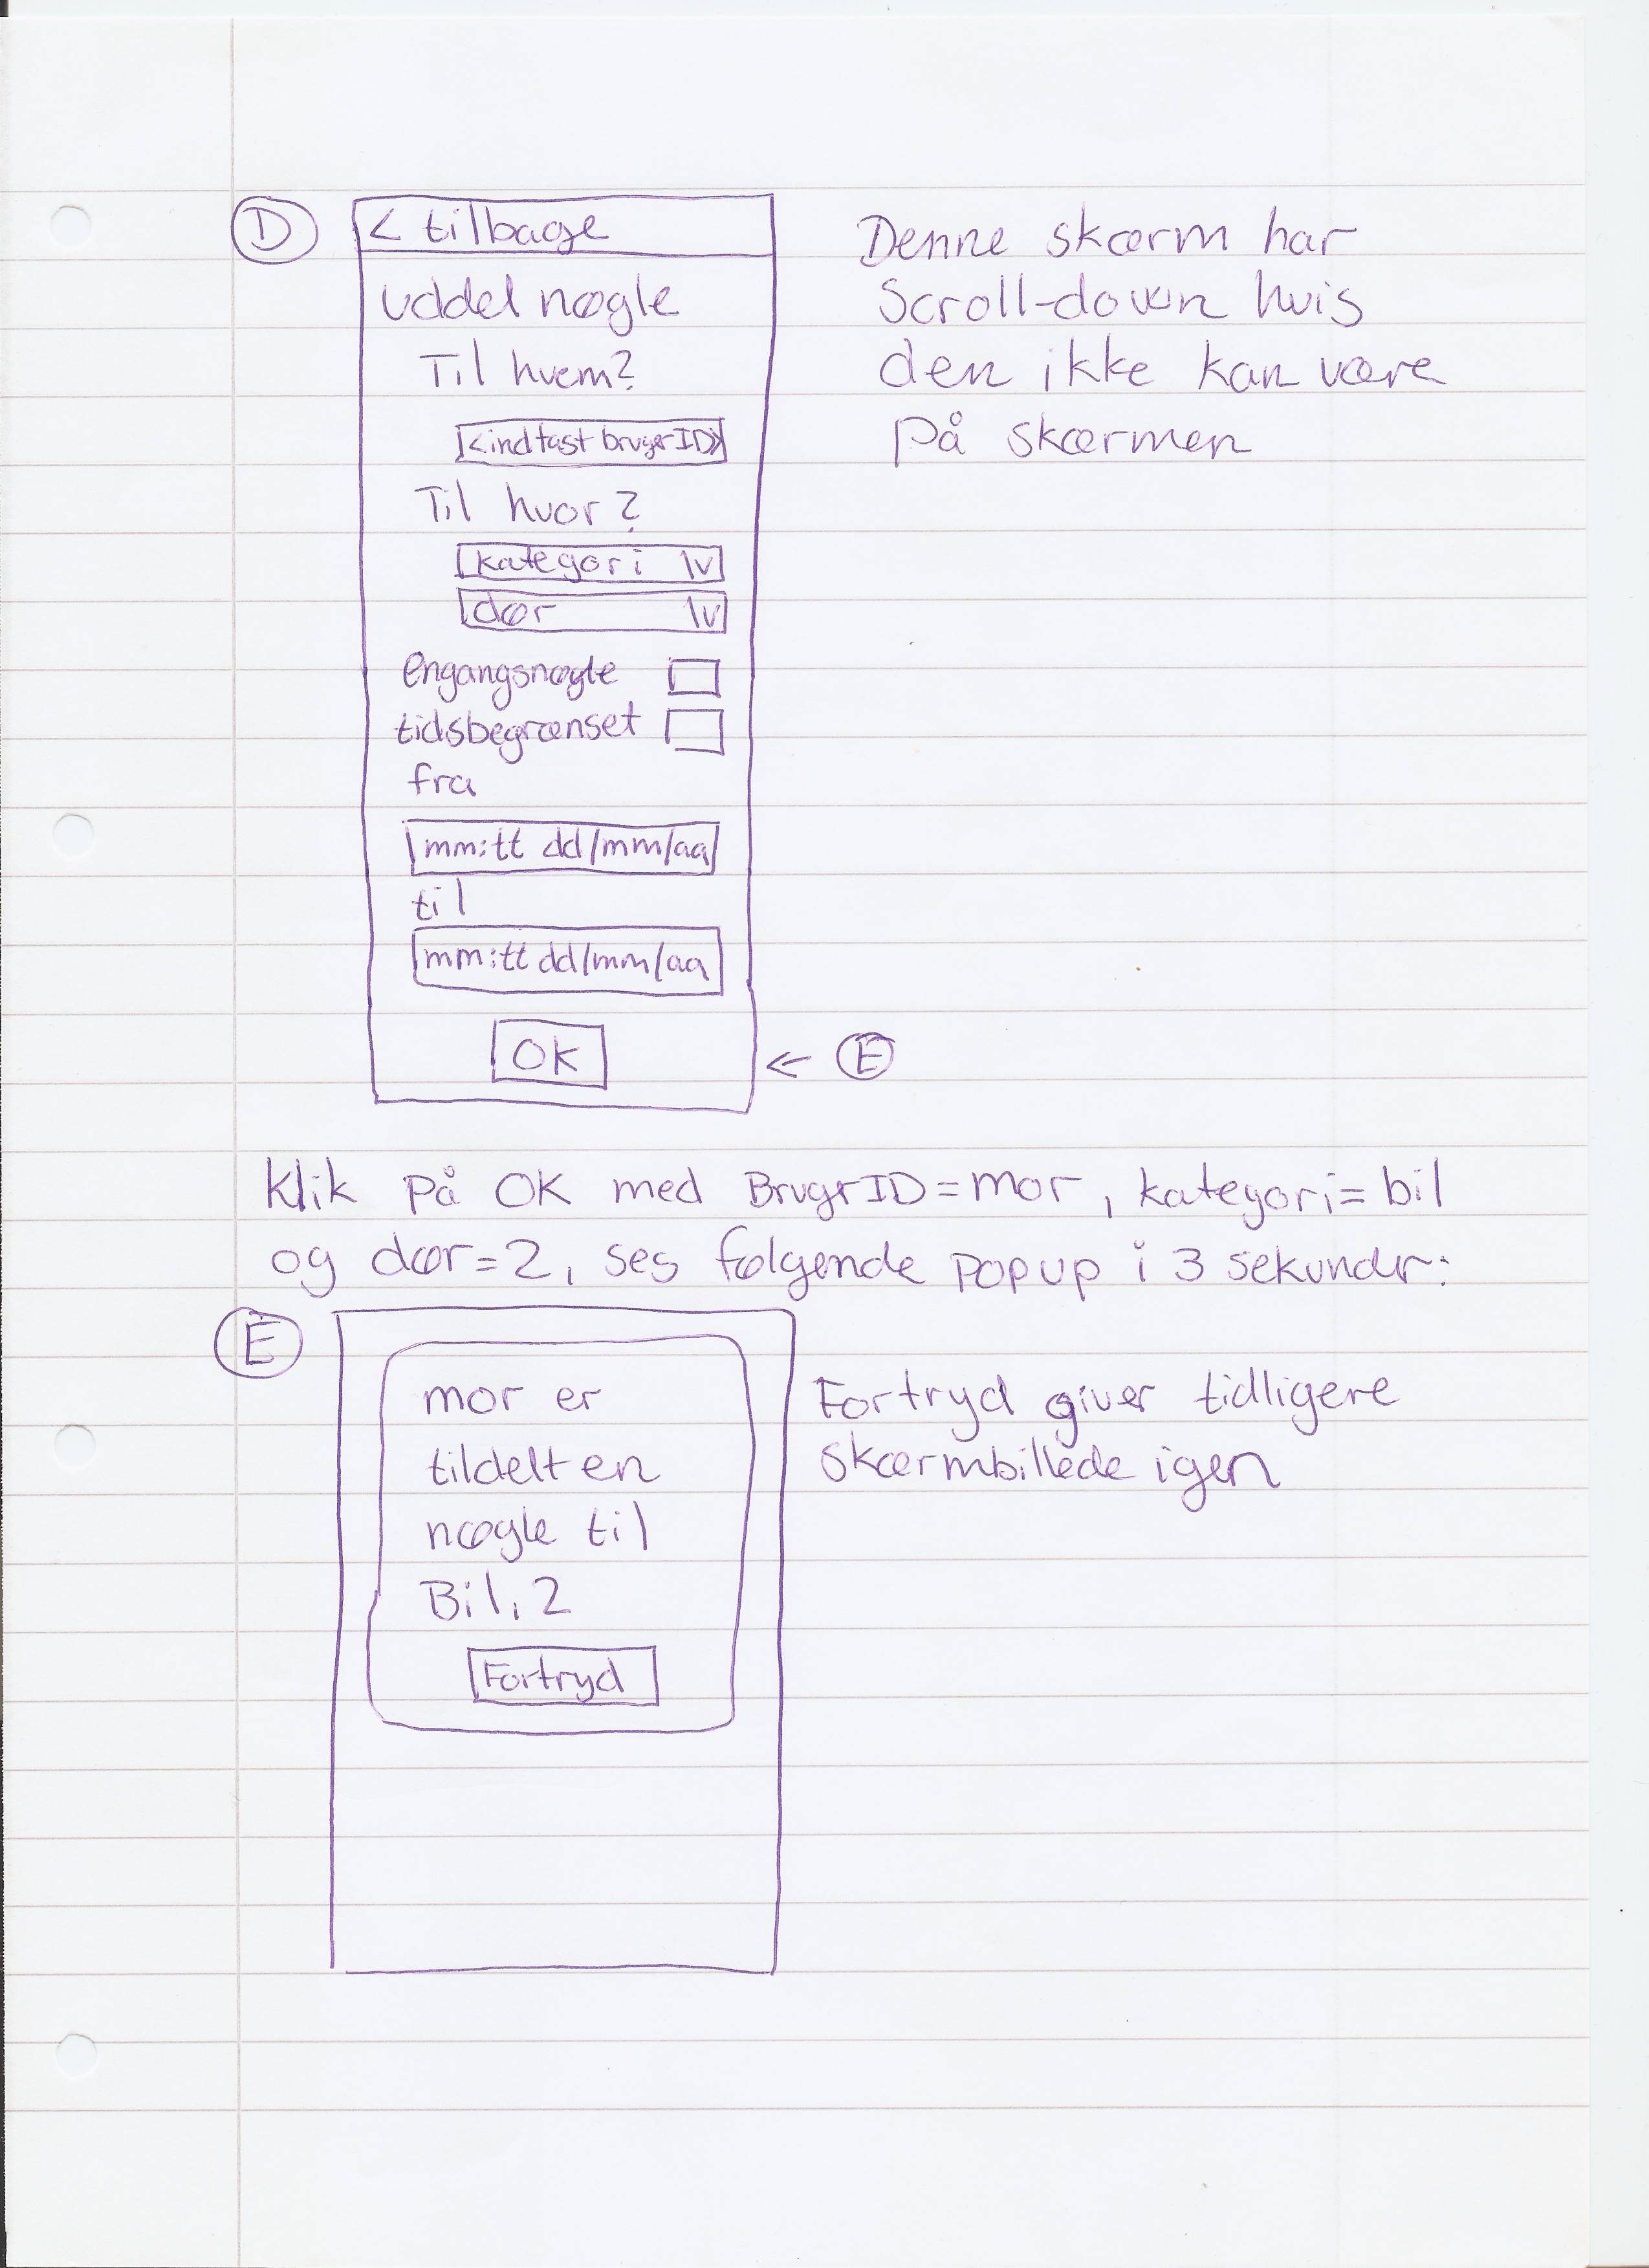 D
< tilbage
Uddel nøgle
Til hvem?
<indtast brugerID>
Til hvor?
kategori \v
dør \v
engangsnøgle
tidsbegrænset
fra
mm:tt dd/mm/aa
til
mm:tt dd/mm/aa
OK
← E
Denne skærm har
Scroll-down hvis
den ikke kan være
på skærmen
Klik på OK med BrugrID=mor, kategori=bil
og dør=2, ses følgende popup i 3 sekundr:
E
mor er
tildelt en
nøgle til
Bil, 2
Fortryd
Fortryd giver tidligere
skærmbillede igen